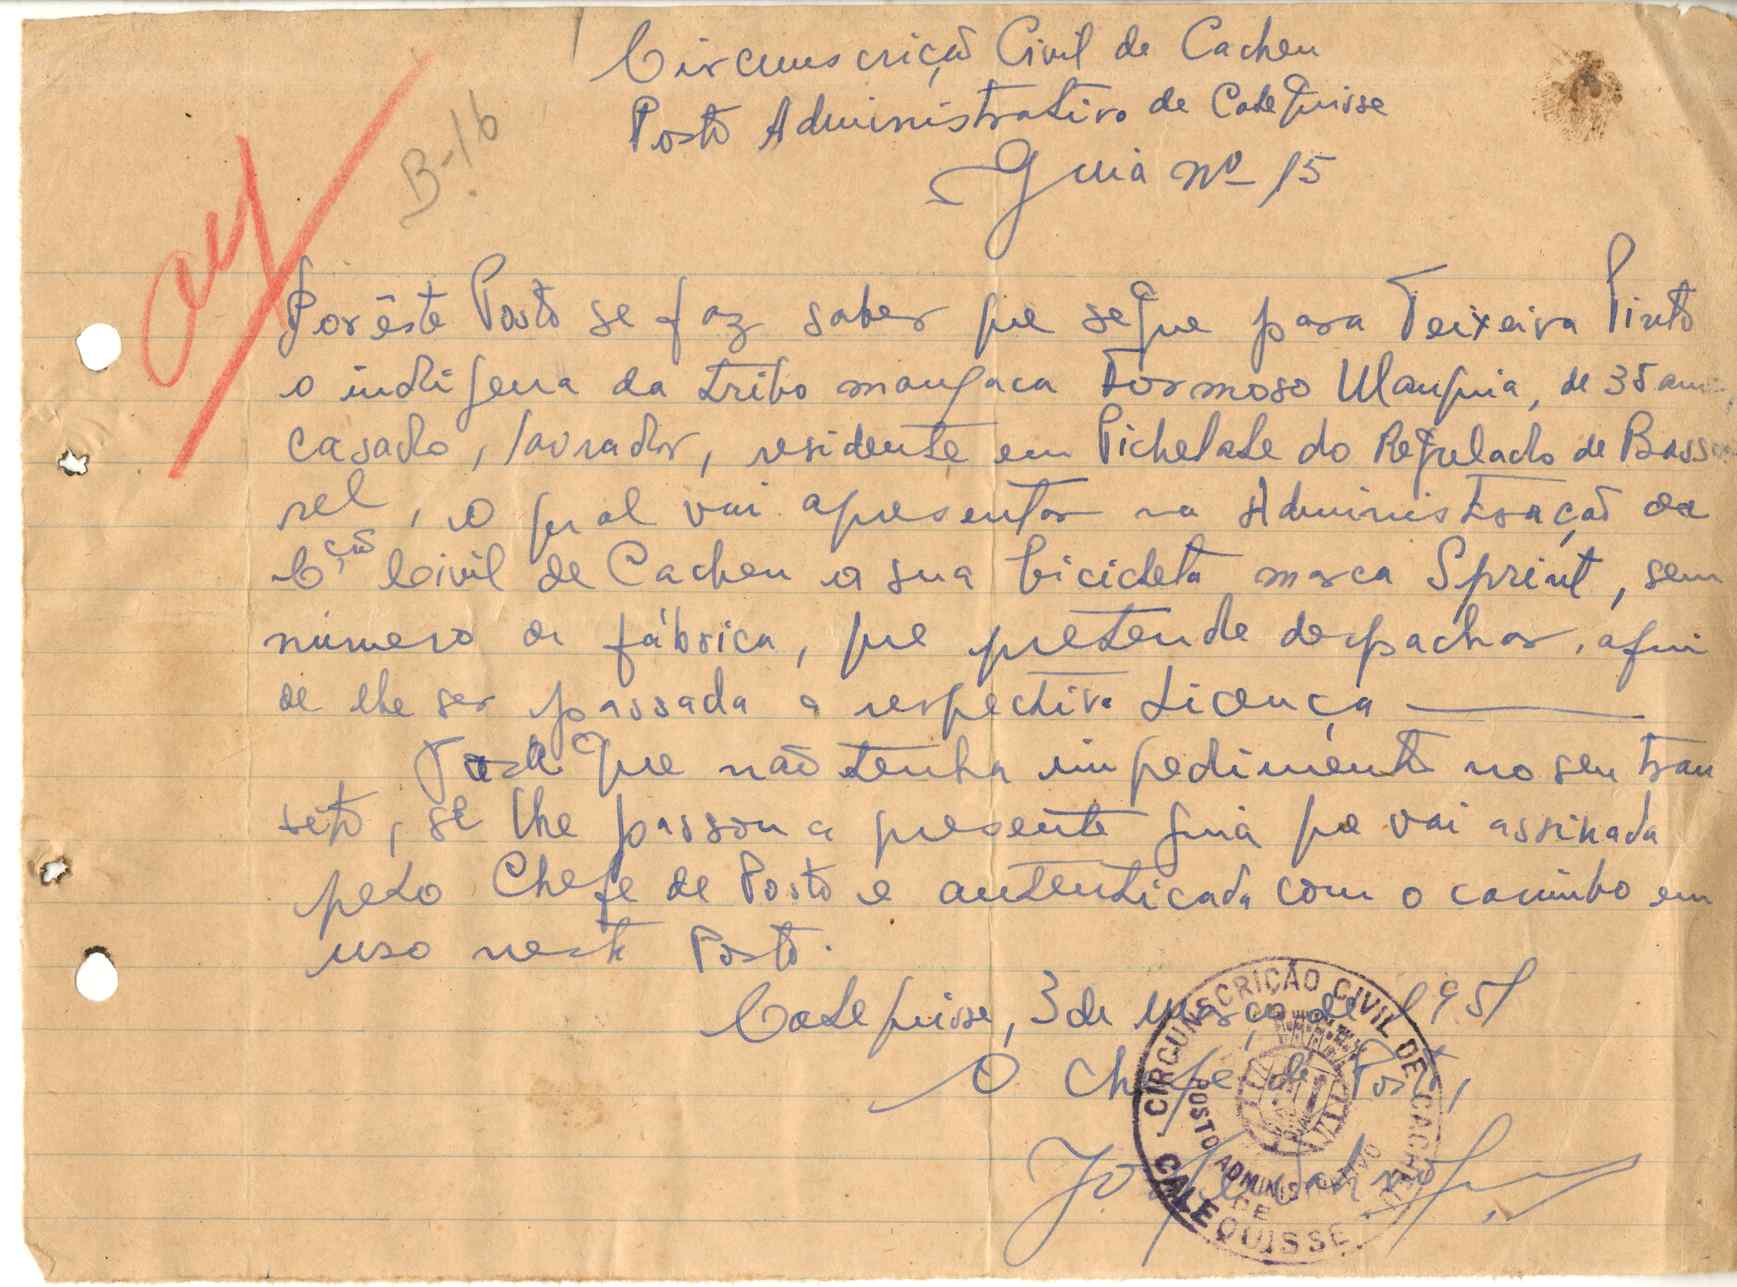 Circunscrição Civil de Cacheu
Posto Administrativo de Calequisse
Guia nº 15
B-16
Por êste Posto se faz saber que segue para Teixeira Pinto
o indigena da tribo mangaca Formoso Manquia, de 35 anos,
casado, lavrador, residente em Pichelate do Regulado de Basse
rel, o qual vai apresentar na Administração da
C.ção Civil de Cacheu a sua bicicleta marca Sprint, sem
número de fábrica, que pretende despachar, afim
de lhe ser passada a respectiva Licença
Para que não tenha impedimento no seu tran
sito, se lhe passou a presente guia que vai assinada
pelo Chefe de Posto e autenticada com o carimbo em
uso neste Posto.
Calequisse, 3 de Março de 1951
O Chefe de Posto,
CIRCUNSCRIÇÃO CIVIL DE CACHEU
POSTO ADMINISTRATIVO
DE
CALEQUISSE